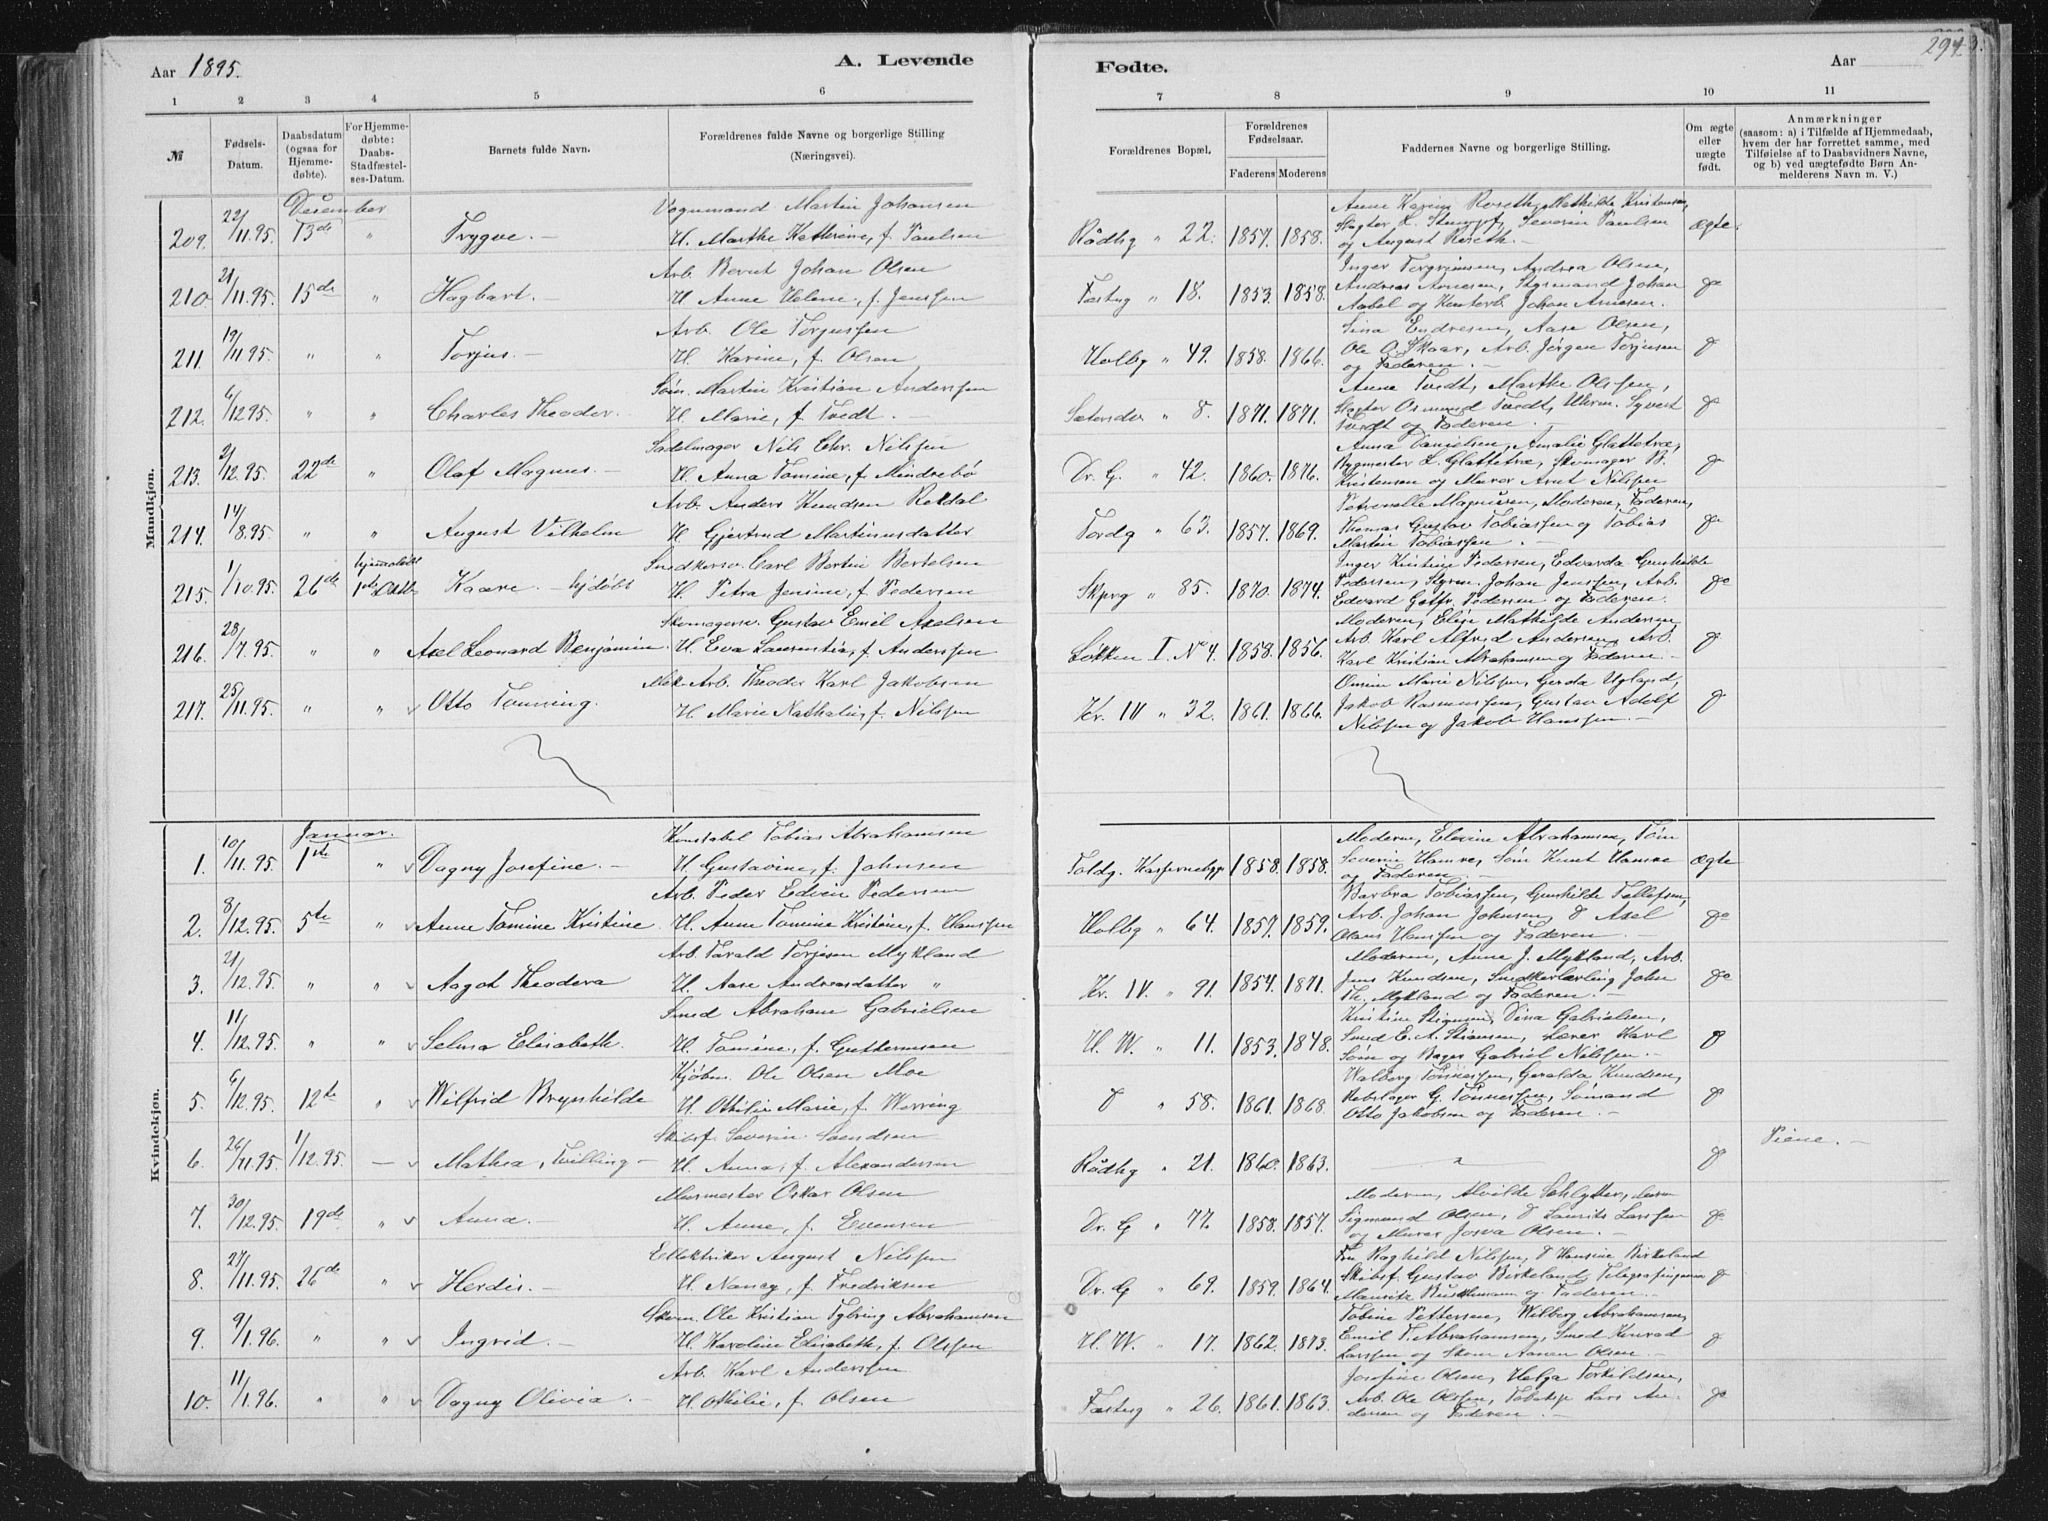 Aar 1895.
A. Levende
Fødte.
Aar
294
1 2 3 4 5 6 7 8 9 10 11
№
Fødsels-Datum.
Daabsdatum (ogsaa for Hjemmedøbte).
For Hjemmedøbte: Daabs-Stadfæstelses-Datum.
Barnets fulde Navn.
Forældrenes fulde Navne og borgerlige Stilling (Næringsvei).
Forældrenes Bopæl.
Forældrenes Fødselsaar.
Faderens Moderens
Faddernes Navne og borgerlige Stilling.
Om ægte eller uægte født.
Anmærkninger
(saasom: a) i Tilfælde af Hjemmedaab, hvem der har forrettet samme, med Tilføielse af to Daabsvidners Navne, og b) ved uægtefødte Børn Anmelderens Navn m. V.)
Mandkjøn.
December
Vognmand Martin Johansen
Anne Karine Roseth, Mathilde Kristensen,
209. 22/11.95. 13de " Trygve. — H. Marthe Kathrine, f. Paulsen Rådhg " 22. 1857. 1858. Slagter L. Stumpf, Severin Paulsen ægte
og August Roseth. —
Arb. Bernt Johan Olsen
Inger Torgrimsen, Andrea Olsen,
210 21/11.95. 15de " Hagbart. — H. Anne Helene, f. Jenssen Fæstng " 18. 1853. 1858. Andreas Arnesen, Styrmand Johan do
Aabel og Kontorb. Johan Arnesen.
Arb. Ole Torjussen
Sina Endresen, Aase Olsen,
211. 19/11.95. " " Torjus. — H. Karine, f. Olsen Holbg " 49. 1858. 1866. Ole O. Skaar, Arb. Jörgen Torjusen do
og Faderen. —
Søm. Martin Kristian Anderssen
Anne Tvedt, Marthe Olssen,
212. 6/12.95. " " Charles Theodor. H. Marie, f. Tvedt. — Setersdv " 8. 1871. 1871. Slagter Osmund Tvedt, Uhrm. Syvert do
Tvedt og Faderen. —
Sadelmager Nils Chr. Nilssen
Anna Danielsen, Amalie Glattetræ,
213. 2/12.95. 22de " Olaf Magnus. — H. Anna Tomine, f. Mindrebø Dr. G. " 42. 1860. 1876. Bygmester L. Glattetræ, Skomager B. do
Kristensen og Murer Arnt Nilssen
Arb. Anders Knudsen Rekdal
Petronelle Magnusen, Moderen, Faderen,
214. 14/8.95. " " August Vilhelm H. Gjertrud Martinusdatter Tordg " 63. 1857. 1869. Thomas Gustav Tobiassen og Tobias do
Martin Tobiassen. —
Snedkersv. Carl Bertin Bertelsen
Inger Kristine Pedersen, Edvarda Gunhilde
215. 1/10.95. 26de hjemdøbt 1ste Oktbr Kaare. — hjdøbt H. Petra Jensine, f. Pedersen Skprg " 85. 1870. 1874. Pedersen, Styrm. Johan Jenssen, Arb. do
Edvard Gotfr. Pedersen og Faderen.
Skomagersv. Gustav Emil Axelsen
Moderen, Elise Mathilde Andersen
216. 28/7.95. " " Axel Leonard Benjamin. H. Eva Laurentia, f. Anderssen Løkken I. No 4. 1858. 1856. Arb. Karl Alfred Andersen, Arb. do
Karl Kristian Abrahamsen og Faderen. —
Mek. Arb. Theodor Karl Jakobsen
Marie Nilssen, Gerda Ugland,
217. 25/11.95. " " Otto Tønning. H. Marie Nathalie, f. Nilssen Kr. IV " 32. 1861. 1866. Jakob Rasmussen, Gustav Adolf do
Nilssen og Jakob Hanssen. —
Kvindekjøn.
Januar.
Konstabel Tobias Abrahamsen
Moderen, Elevine Abrahamsen, Tøm
1. 10/11.95. 1ste " Dagny Josefine. — H. Gustavine, f. Johnsen Toldg. Kasernebygg 1858. 1858. Severin Hamre, Søm Knut Hamre ægte
og Faderen. —
Arb. Peder Edvin Pedersen
Barbra Tobiassen, Gunhilde Tellefsen,
2. 8/12.95. 5te " Anne Tomine Kristine H. Anne Tomine Kristine, f. Hanssen Holbg " 64. 1857. 1859. Arb. Johan Johnsen, do Axel do
Olaus Hanssen og Faderen. —
Arb. Tarald Torjusen Mykland
Moderen, Anne J. Mykland, Arb.
3. 21/12.95. " " Aagot Theodora H. Aase Andreasdatter " Kr. IV. " 91. 1854. 1871. Jens Knudsen, Snedkerlærling John do
Th. Mykland og Faderen. —
Smed Abraham Gabrielsen
Kristine Stiansen, Dina Gabrielsen,
4. 11/12.95. " " Selma Elisabeth. H. Tomine, f. Guttormsen H. W. " 11. 1853. 1848. Smed E. A. Stiansen, Lærer Karl do
Sørn og Bager Gabriel Nilssen. —
Kjøbm. Ole Olsen Moe
Walborg Tønnessen, Geralda Knudsen,
5. 6/12.95. 12te " Wilfrid Brynhilde H. Othilie Marie, f. Werring do " 58. 1861. 1868. Rebslager G. Tønnessen, Sømand do
Otto Jakobsen og Faderen. —
Skibsf. Severin Svendsen
Piene. —
6. 26/11.95. 1/12.95. — Mathea, Tvilling — H. Anna, f. Alexandersen Rådhg " 21. 1860. 1863. do
Murmester Oskar Olsen
Moderen, Alvilde Schlytter, Murer
7. 30/12.95. 19de " Anna. — H. Anne, f. Evensen Dr. G " 77. 1858. 1857. Sigmund Olsen, do Laurits Larssen do
og Murer Josva Olsen. —
Ellektriker August Nilssen
Fru Raghild Nilssen, do Hansine Birkeland
8. 27/11.95. 26de " Herdis. — H. Nancy, f. Fredriksen Dr. G " 69. 1859. 1864. Skibsf. Gustav Birkeland, do
Mauritz Buschmann og Faderen. —
Skom. Ole Kristian Tybring Abrahamsen
Tobine Pettersen, Wilborg Abrahamsen,
9. 9/1.96. " " Ingrid. — H. Karoline Elisabeth, f. Olssen H. W. " 17. 1862. 1873. Emil T. Abrahamsen, Smed Konrad do
Larssen og Skom Aanen Olsen. —
Arb. Karl Anderssen
Josefine Olsen, Helga Torkildsen,
10. 11/1.96. " " Dagny Olivia. — H. Othilie, f. Olsen Fæstng " 26. 1861. 1863. Arb. Ole Olssen, Lars An- do
dersen og Faderen. —